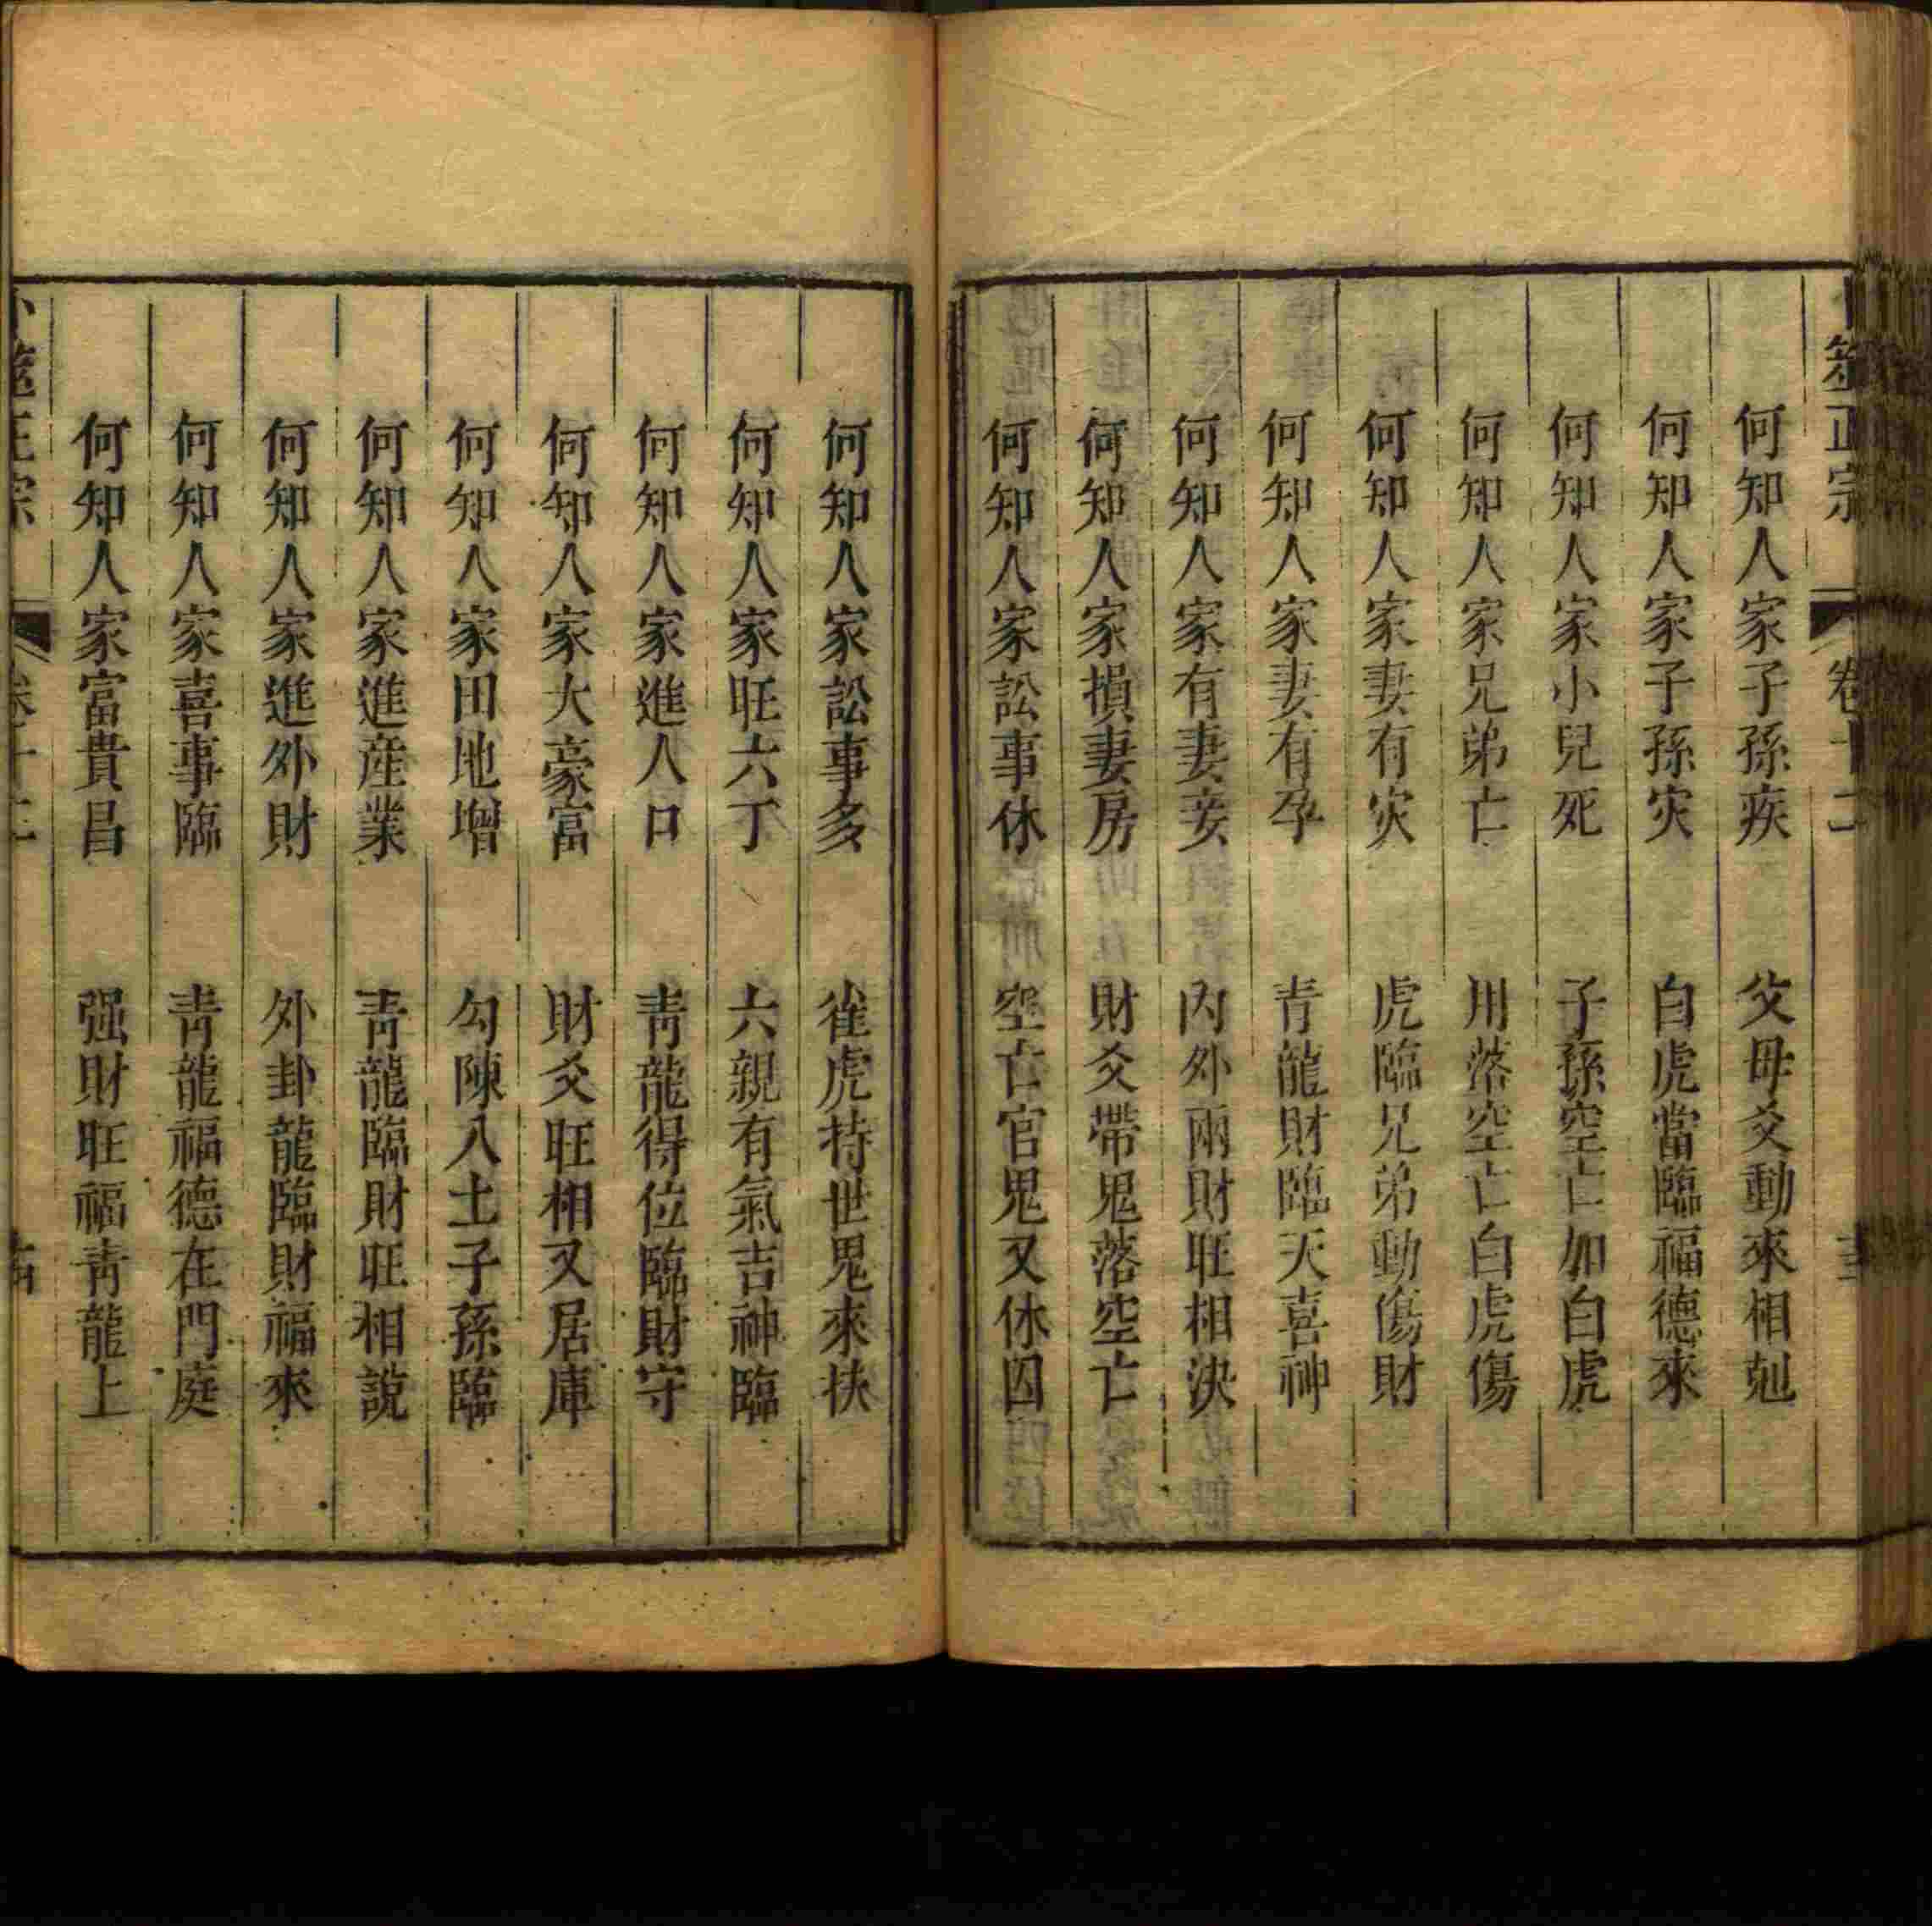 筮正宗 卷十二
何知人家子孫疾 父母爻動來相剋
何知人家子孫灾 白虎當臨福德來
何知人家小兒死 子孫空亡加白虎
何知人家兄弟亡 用落空亡白虎傷
何知人家妻有灾 虎臨兄弟動傷財
何知人家妻有孕 青龍財臨天喜神
何知人家有妻妾 內外兩財旺相決
何知人家損妻房 財爻帶鬼落空亡
何知人家訟事休 空亡官鬼又休囚
何知人家訟事多 雀虎持世鬼來扶
何知人家旺六丁 六親有氣吉神臨
何知人家進人口 青龍得位臨財守
何知人家大豪富 財爻旺相又居庫
何知人家田地增 勾陳入土子孫臨
何知人家進產業 青龍臨財旺相說
何知人家進外財 外卦龍臨財福來
何知人家喜事臨 青龍福德在門庭
何知人家富貴昌 强財旺福青龍上
筮正宗 卷十二